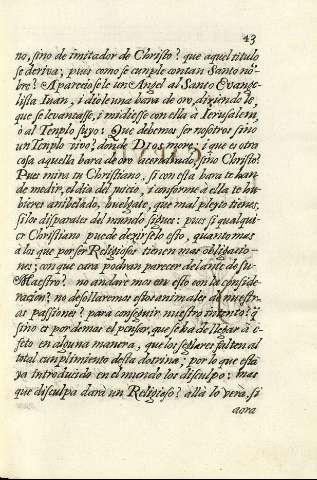 43
no, sino de imitador de Christo? que aquel titulo
se deriva; pues como se cunple con tan Santo nō-
bre? Apareciosele un Angel al Santo Evange-
lista Iuan, i diole una bara de oro, diziendo le,
que se levantasse, i midiesse con ella à Ierusalem,
ò al Templo suyo: Que debemos ser nosotros sino
un Templo vivo? donde DIOS more; i que es otra
cosa aquella bara de oro acendrado, sino Christo?
Pues mira tu Christiano, si con esta bara te han
de medir, el dia del juicio, i conforme à ella te hu-
bieres anibelado, huelgate, que mal pleyto tienes,
si los disparates del mundo sigues: pues si qualqui-
er Christiano puede dezirselo esto, quanto mas
à los que por ser Religiosos tienen mas obligacio-
nes; con que cara podran parecer delante de su
Maestro? no andare mos en esto con la conside-
racion? no desollaremos estos animales de nuestr-
as passiones? para conseguir nuestro intento? q̄
sino es por demas el pensar, que se ha de llegar à e-
feto en alguna manera, que los seglares falten al
total cunplimiento desta dotrina; por lo que està
ya introducido en el mundo los disculpo: mas
que disculpa darà un Religioso? allà lo verà, si
aora